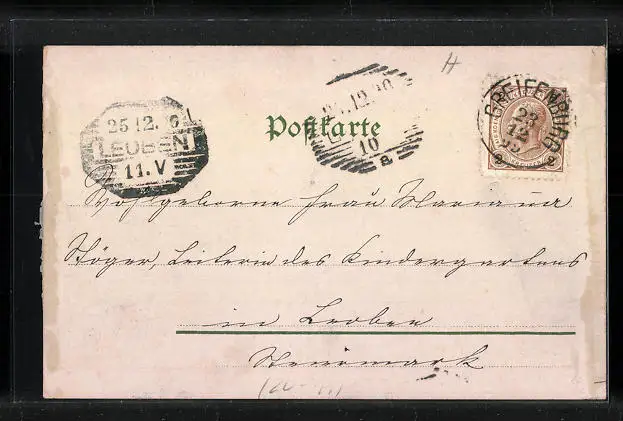 H
Postkarte
25 12. 
LEOBEN
11. V
12.
10
a
GREIFENBURG
23
12
Wohlgeborne Frau Maria
Stöger, Leiterin des Kindergartens
in Leoben
Steiermark